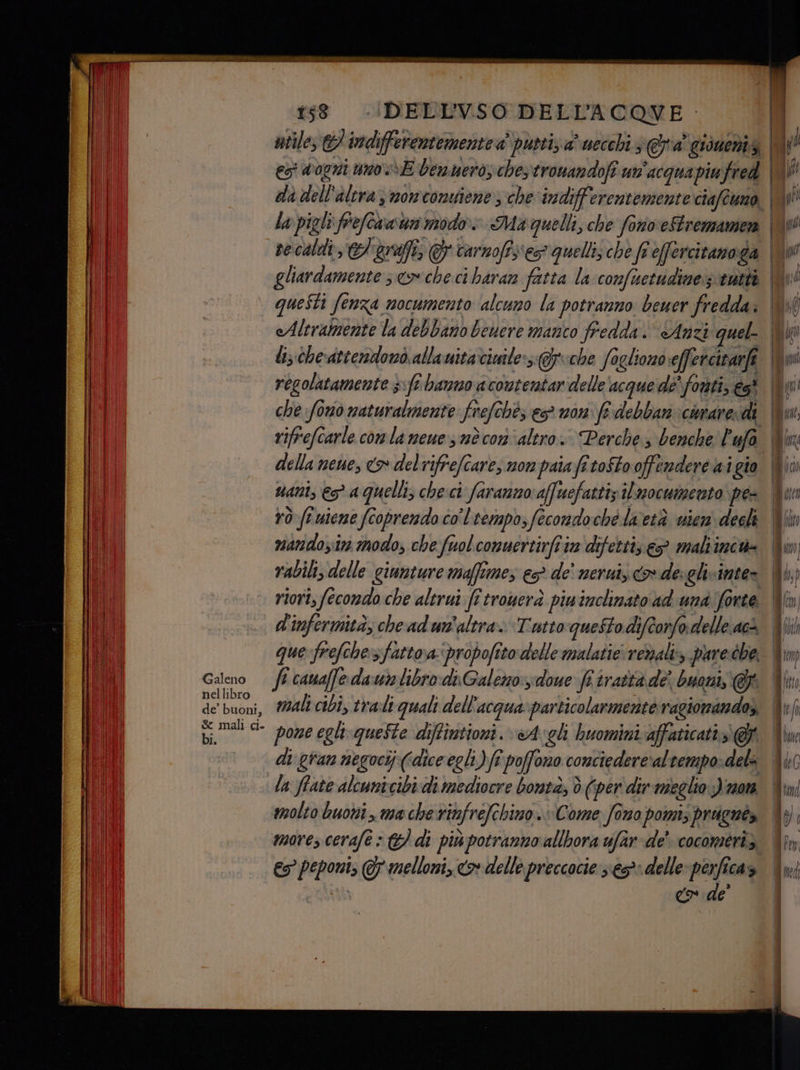 158 DELL'VSO DELL'ACQVE
utile, & indifferentemente a' putti, a' uecchi, & a' gioueni,
& d'ogni uno. E ben uero, che, trouandosi un'acqua piu fred
da dell'altra, non conuiene, che indifferentemente ciascuno
la pigli fresca a un modo. Ma quelli, che sono estremamen
te caldi, & grassi, & carnosi, & quelli, che si essercitano ga
gliardamente, & che ci haran fatta la consuetudine; tutti
questi senza nocumento alcuno la potranno beuer fredda.
Altramente la debbano beuere manco fredda. Anzi quel-
li, che attendono alla uita ciuile, & che sogliono essercitarsi
regolatamente; si hanno a contentar delle acque de' fonti, &
che sono naturalmente fresche, & non si debban curare di
rifrescarle con la neue, nè con altro. Perche, benche l'uso
della neue, & del rifrescare, non paia si tosto offendere a i gio
uani, & a quelli, che ci saranno assuefatti; il nocumento pe-
rò si uiene scoprendo co'l tempo, secondo che la età uien decli
nando, in modo, che suol conuertirsi in difetti, & mali incu-
rabili, delle giunture massime, & de' nerui, & de gli inte-
riori, secondo che altrui si trouerà piu inclinato ad una sorte
d'infermità, che ad un'altra. Tutto questo discorso delle ac-
que fresche, fatto a proposito delle malatie renali, pare che
si cauasse da un libro di Galeno, doue si tratta de' buoni, &
mali cibi, tra li quali dell'acqua particolarmente ragionando,
pone egli queste distintioni. A gli huomini affaticati, &
di gran negocij (dice egli) si possono conciedere al tempo del-
la state alcuni cibi di mediocre bontà, ò (per dir meglio) non
molto buoni, ma che rinfreschino. Come sono pomi, prugne,
more, cerase: & di più potranno allhora usar de' cocomeri,
& peponi, & melloni, & delle preccocie, & delle persica,
& de'
Galeno
nel libro
de' buoni,
& mali ci-
bi.